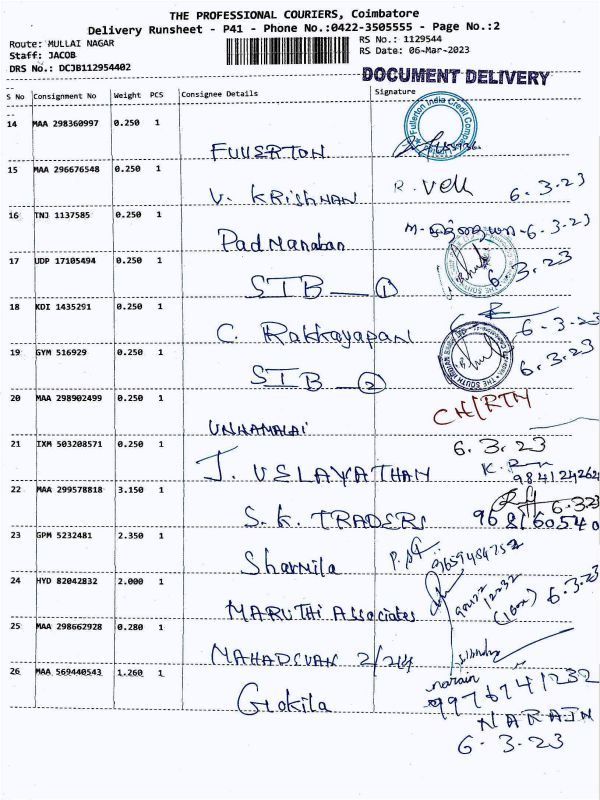 THE PROFESSIONAL COURIERS, Coimbatore
Delivery Runsheet - P41 - Phone No.:0422-3505555 - Page No.:2
Route: MULLAI NAGAR RS No.: 1129544
Staff: JACOB RS Date: 06-Mar-2023
DRS No.: DCJB112954402
DOCUMENT DELIVERY
S No Consignment No Weight PCS Consignee Details Signature
14 MAA 298360997 0.250 1
Fullerton India Credit Comp
FULLERTON
15 MAA 296676548 0.250 1
V. KRISHNAN R. Vell 6-3-23
16 TNJ 1137585 0.250 1
Padmanaban 6-3-23
17 UDP 17105494 0.250 1
STB — 1 6-3-23
18 KDI 1435291 0.250 1
C. Rakkayapan 6-3-23
19 GYM 516929 0.250 1
STB — 2 6-3-23
20 MAA 298902499 0.250 1
UNNAMALAI
21 IXM 503208571 0.250 1 6.3.23
J. VELAYATHAN
22 MAA 299578818 3.150 1 6-3-23
S.K. TRADERS 968160540
23 GPM 5232481 2.350 1
Sharmila
24 HYD 82042832 2.000 1 6-3-23
MARUTHI Associates
25 MAA 298662928 0.280 1
MAHADEVAN 2/214
26 MAA 569440543 1.260 1 narain
Gokila 9976741232
NARAIN
6-3-23